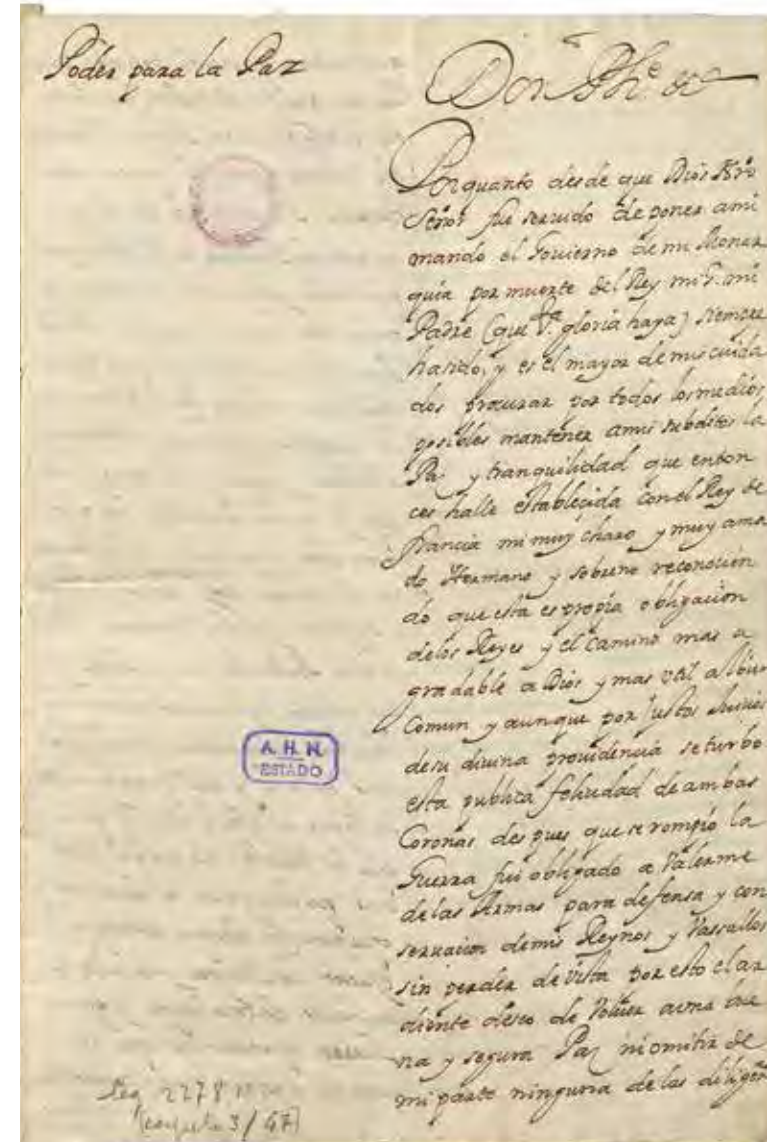 Poder para la Paz
Don Phe. &a
Porquanto desde que Dios Nro
Señor fue seruido de poner a mi
mando el Gouierno de mi Monar
quia por muerte del Rey mi S. mi
Padre (que Sta. gloria haya) siempre
ha sido, y es el mayor de mis cuida
dos procurar por todos los medios
posibles mantener a mis subditos la
Paz y tranquilidad que enton
ces halle establecida con el Rey de
francia mi muy charo y muy ama
do Hermano y sobrino reconocien
do que esta es propia obligacion
de los Reyes y el camino mas a
gradable a Dios y mas vtil al bien
Comun y aunque por justos Juicios
de su diuina prouidencia se turbo
esta publica felicidad de ambas
Coronas despues que se rompio la
Guerra fui obligado a Valerme
de las Armas para defensa y con
seruacion de mis Reynos y Vassallos
sin perder de vista por esto el ar
diente deseo de Voluer a vna bue
na y segura Paz ni omitir de
mi parte ninguna de las diligen
A. H. N.
ESTADO
Leg 2278
(carpeta 3/47)